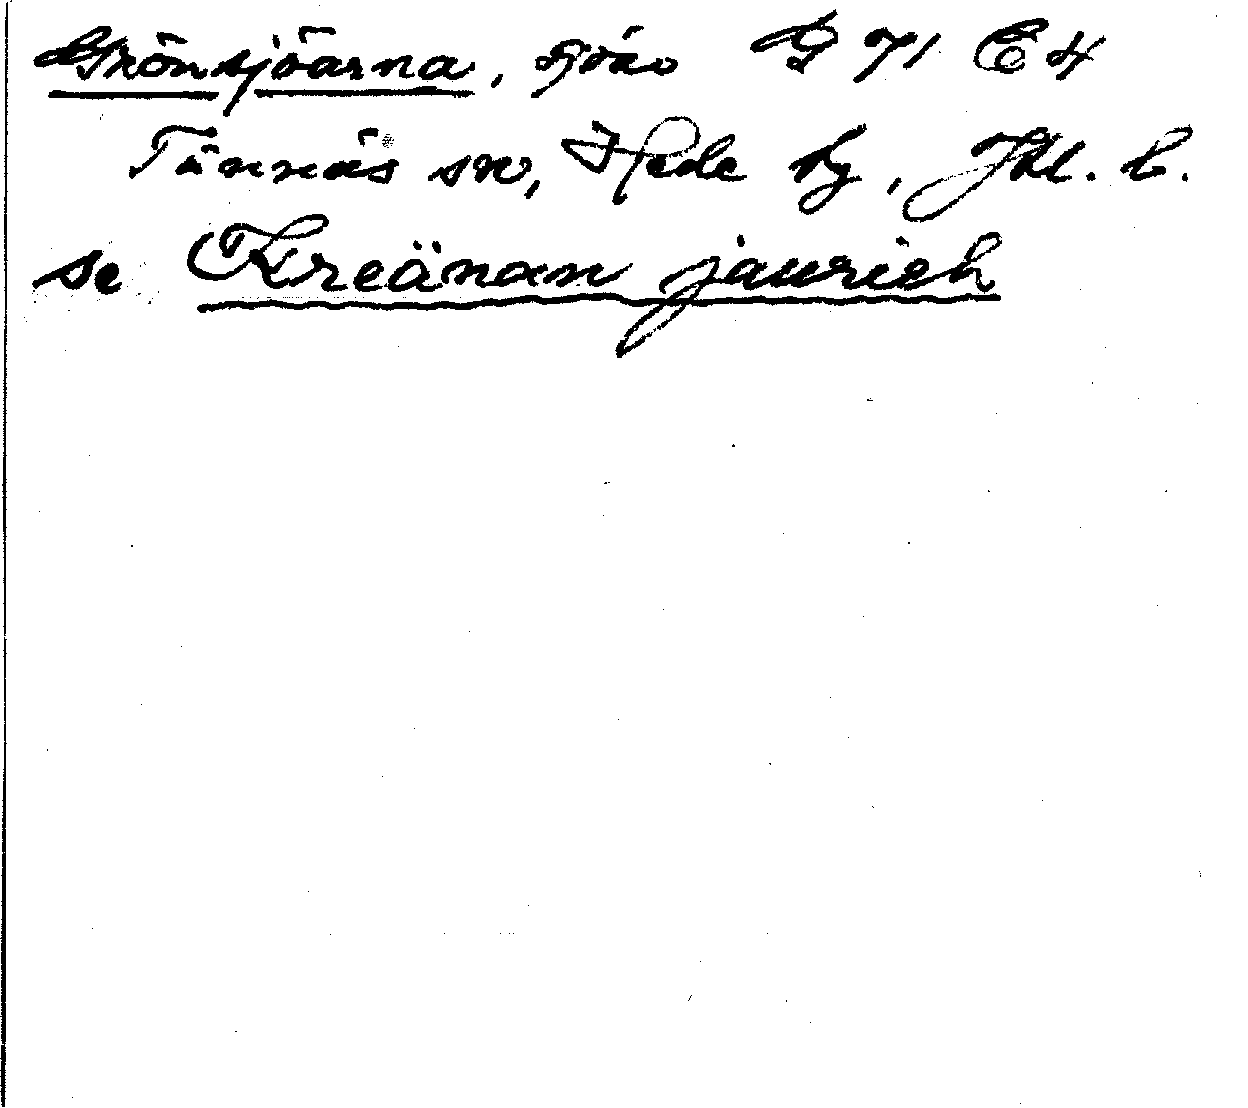 Grönsjöarna, sjöar G 71 E 4
Tännäs sn, Hede tg, Jtl. l.
se Kreänan jaurieh